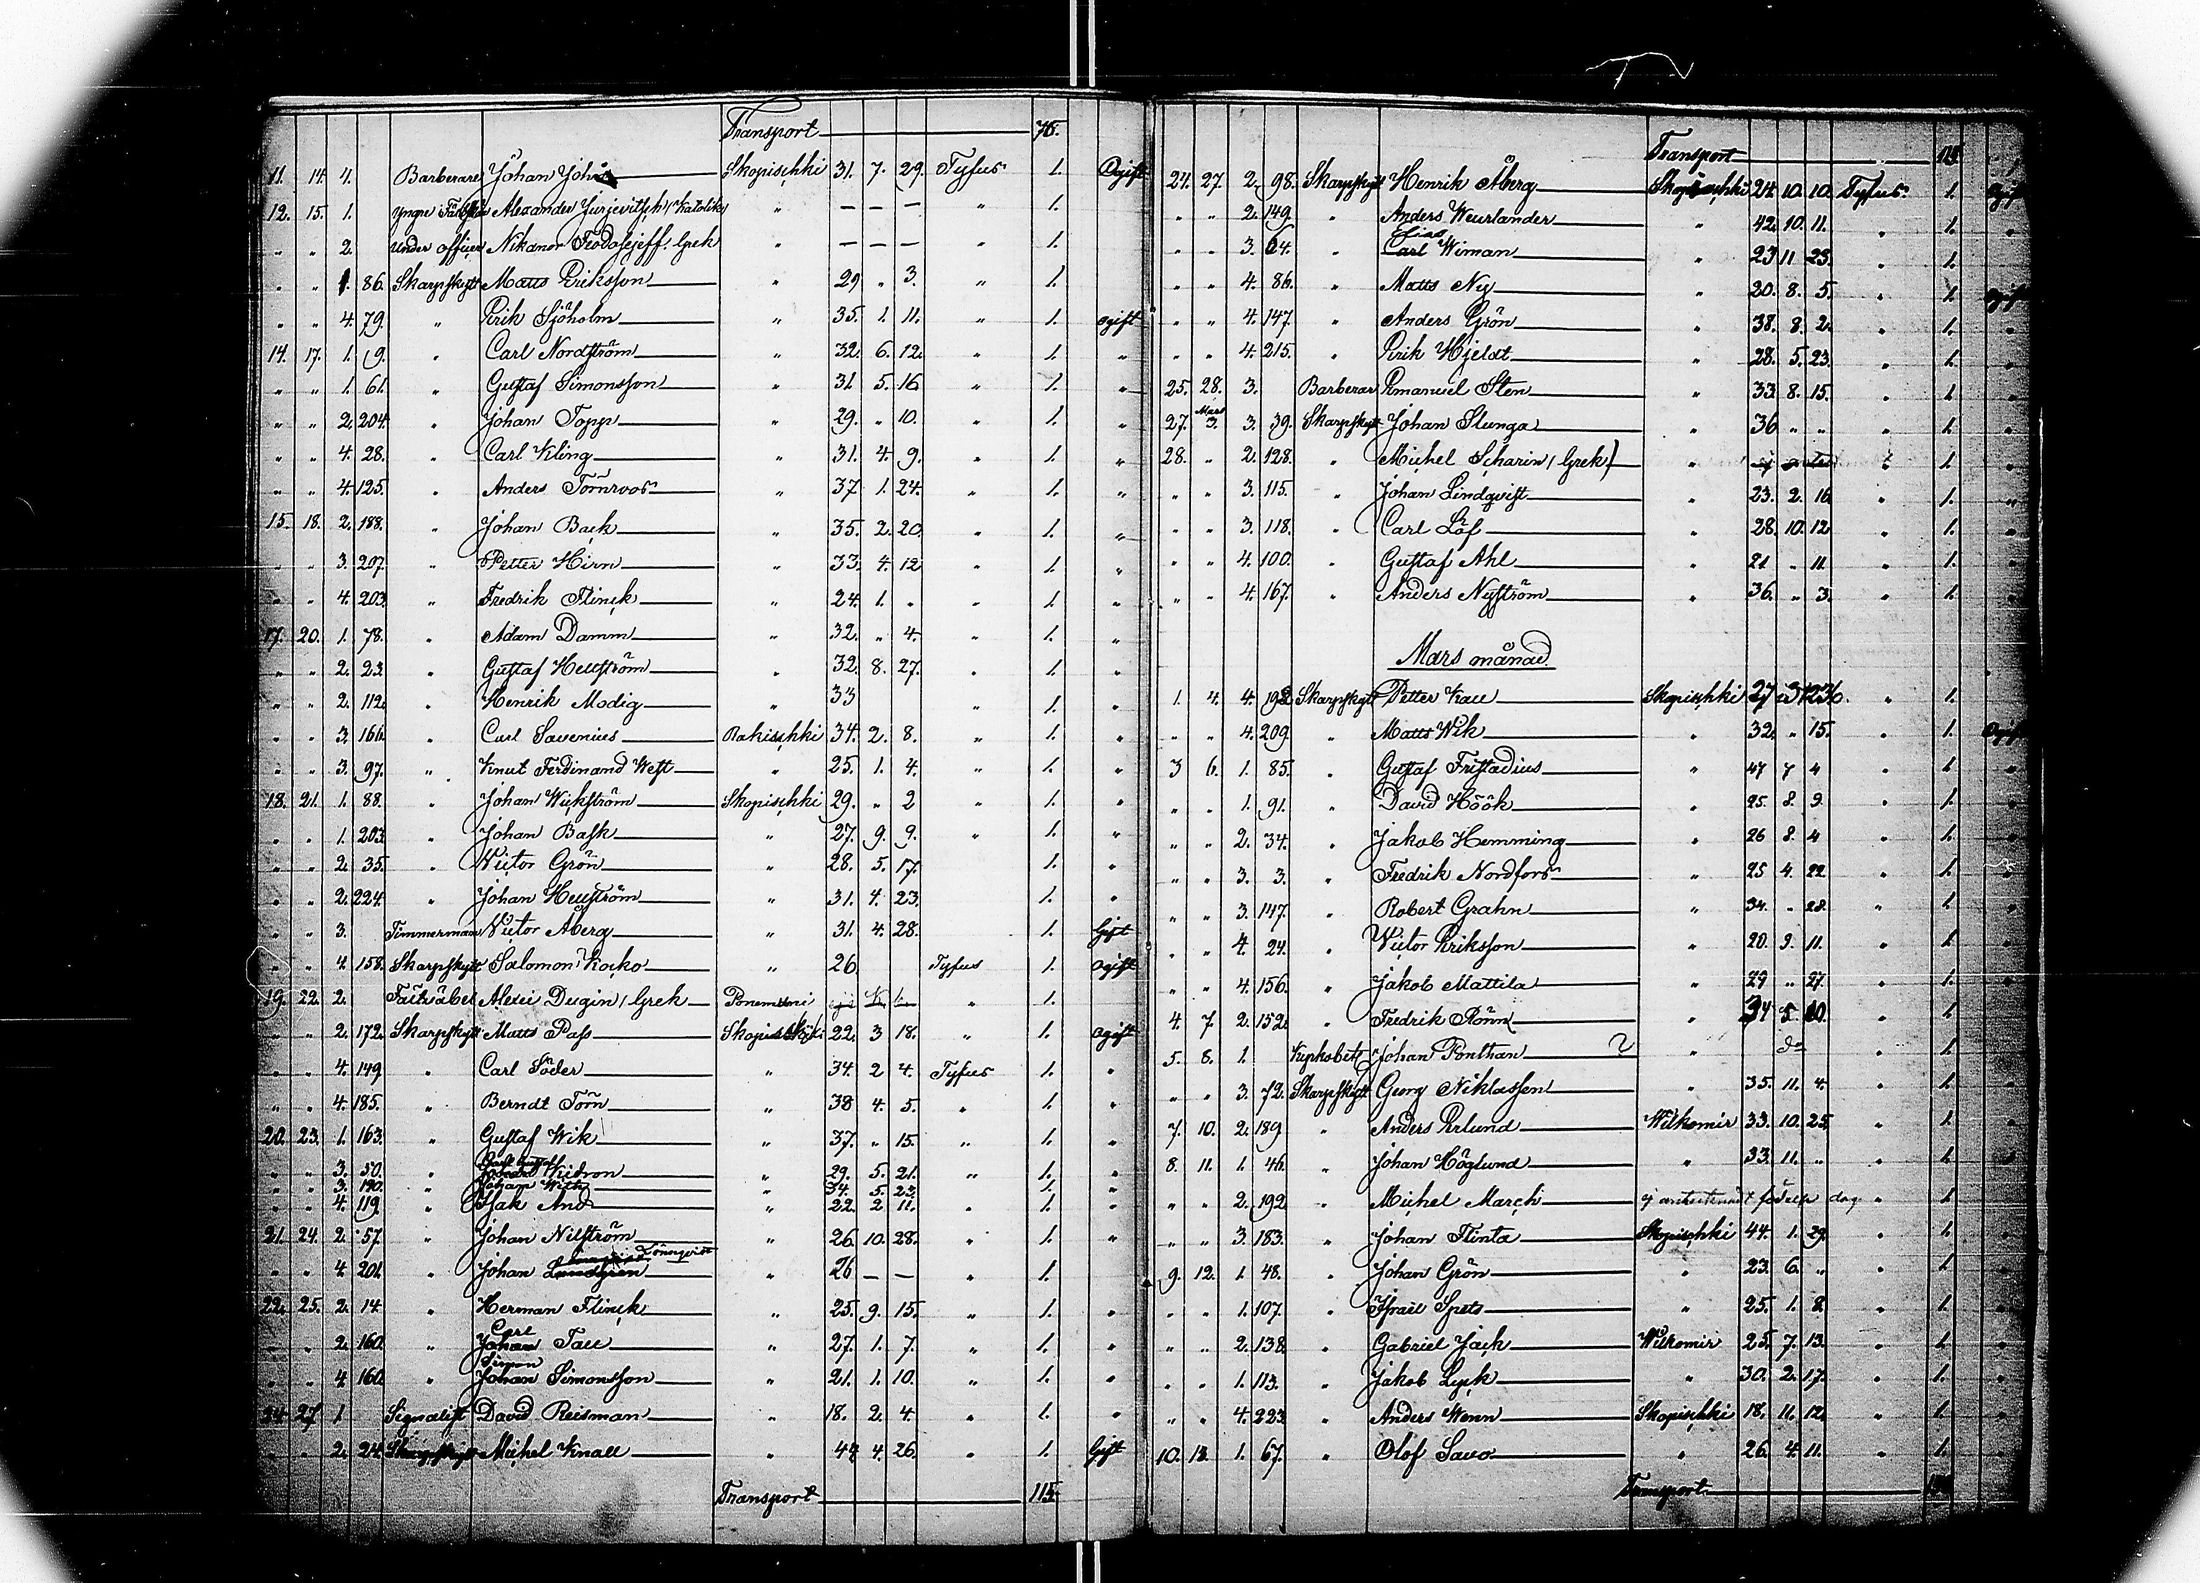 Transport 75.
11. 14. 4. Barberare Johan Skopischki 31. 7. 29. Tyfus 1. Ogift
12. 15. 1. Yngre Alexander Jurjevitsch, Katolik " — — — " 1.
" " 2. Under officer Nikanor Feodosejeff, Grek " — — — " 1.
" " 1. 86. Skarpskytt Matts Eriksson " 29 " 3. " 1.
" " 4. 79. " Erik Sjöholm " 35. 1. 11. " 1. ogift
14. 17. 1. 9. " Carl Nordström " 32. 6. 12. " 1. "
" " 1. 61. " Gustaf Simonsson " 31. 5. 16 " 1. "
" " 2. 204. " Johan Topp " 29. " 10. " 1. "
" " 4. 28. " Carl Kling " 31. 4. 9. " 1. "
" " 4. 125. " Anders Törnroos " 37. 1. 24. " 1. "
15. 18. 2. 188. " Johan Back " 35. 2. 20. " 1. "
" " 3. 207. " Petter Hirn " 33. 4. 12 " 1. "
" " 4. 203. " Fredrik Flinck " 24. 1. " " 1. "
17. 20. 1. 78. " Adam Damm " 32. " 4. " 1. "
" " 2. 23. " Gustaf Hellström " 32. 8. 27. " 1. "
" " 2. 112. " Henrik Modig " 33 " 1. "
" " 3. 166. " Carl Savenius Rakischki 34. 2. 8. " 1. "
" " 3. 97. " Knut Ferdinand West " 25. 1. 4. " 1. "
18. 21. 1. 88. " Johan Wickström Skopischki 29. " 2 " 1. "
" " 1. 203. " Johan Bask " 27. 9. 9. " 1. "
" " 2. 35. " Victor Grön " 28. 5. 17. 1. "
" " 2. 224. " Johan Hellström " 31. 4. 23. 1. "
" " 3. Timmerman Victor Åberg " 31. 4. 28. 1. Gift
" " 4. 158. Skarpskytt Salomon Kocko " 26. Tyfus 1. Ogift
19. 22. 2. Fältväbel Alexei Dugin, Grek Ponemuni " 1.
" " 2. 172. Skarpskytt Matts Pass 22. 3 18. " 1. Ogift
" " 4. 149. " Carl Söder " 34. 2 4. Tyfus 1. "
" " 4. 185. " Berndt Törn " 38 4. 5. " 1. "
20. 23. 1. 163. " Gustaf Wik " 37. " 15. " 1. "
" " 3. 50. " Carl Gustaf Widron " 29. 5. 21. " 1. "
" " 3. 190. " Johan " 34. 5. 23. 1. "
" " 4. 119. " Isak And " 22. 2 11. " 1. "
21. 24. 2. 57. " Johan Nilström " 26. 10. 28. " 1. "
" " 4. 201. " Johan Lundgren Lönnqvist " 26 — — " 1.
22. 25. 2. 14. " Herman Flinck " 25. 9. 15. " 1. "
" " 2. 160. " Carl Johan Tall " 27. 1. 7. " 1. "
" " 4. 160. " Simon Johan Simonsson " 21. 1. 10. " 1. "
24. 27. 1. Signalist David Reisman " 18. 2. 4. " 1. "
" " 2. 24. Skarpskytt Michel Knall " 44 4. 26. " 1. Gift
Transport 115.
Transport 115
24. 27. 2. 98. Skarpskytt Henrik Åberg Skopischki 24. 10. 10. Tyfus. 1. Ogift
" " 2. 149. " Anders Weurlander " 42. 10. 11. " 1. "
" " 3. 64. " Elias Carl Wiman " 23 11 23. " 1.
" " 4. 86. " Matts Ny " 20. 8. 5. " 1. Ogift
" " 4. 147. " Anders Grön " 38. 8. 2. " 1. "
" " 4. 215. " Erik Hjeldt " 28. 5. 23. " 1. "
25. 28. 3. Barberar Emanuel Sten " 33. 8. 15. " 1. "
27. Mars 3. 3. 39. Skarpskytt Johan Slunga " 36 " " " 1. "
28. " 2. 128. " Michel Scharin, Grek " " 1. "
" " 3. 115. " Johan Lindqvist " 23. 2. 16. " 1. "
" " 3. 118. " Carl Löf " 28. 10. 12 " 1. "
" " 4. 100. " Gustaf Ahl " 21 " 11. " 1. "
" " 4. 167. " Anders Nyström " 36. " 3. " 1. "
Mars månad
1. 4. 4. 192 Skarpskytt Petter Kall Skopischki 27 " 1.
" " 4. 209. " Matts Wik " 32. " 15. " 1. Ogift
3 6. 1. 85. " Gustaf Fristadius " 47 7 4 " 1. "
" " 1. 91. " David Höök " 25. 8. 9. " 1. "
" " 2. 34. " Jakob Hemming " 26 8. 4 " 1. "
" " 3. 3. " Fredrik Nordfors " 25 4. 22 " 1. "
" " 3. 147. " Robert Grahn " 34. " 28. " 1. "
" " 4. 24. " Victor Eriksson " 20. 9. 11. " 1. "
" " 4. 156. " Jakob Mattila " 29 " 27. " 1. "
4. 7. 2. 152. " Fredrik Rönn " 34 5. 10. " 1. "
5. 8. 1. Johan Ponthan " " 1. "
" " 3. 72. Skarpskytt Georg Niklassen " 35. 11. 4. " 1. "
7. 10. 2. 189 " Anders Erlund Wilkomir 33. 10. 25. " 1. "
8. 11. 1. 46. " Johan Höglund " 33. 11. " " 1. "
" " 2. 192 " Michel March ej antecknadt född dag " 1. "
" " 3. 183. " Johan Flinta Skopischki 44. 1. 29. " 1. "
9. 12. 1. 48. " Johan Grön " 23. 6. " " 1. "
" " 1. 107. " Israel Spets " 25. 1. 8. " 1. "
" " 2. 138. " Gabriel Jack Wilkomir 25. 7. 13. " 1. "
" " 1. 113. " Jakob Lyck " 30. 2. 17. " 1. "
" " 4. 223. " Anders Wenn Skopischki 18. 11. 12. " 1. "
10. 13. 1. 67. " Olof Savo " 26. 4. 11. " 1. "
Transport